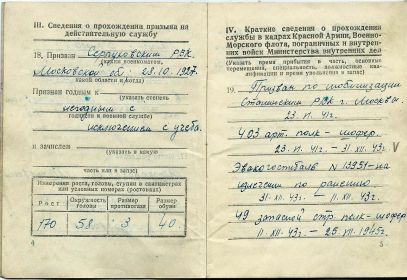 III. Сведения о прохождении призыва на
действительную службу
18. Призван Серпуховским РВК
(каким военкоматом,
Московской об. 03.10.1927г.
какой области и когда)
Признан годным к
(указать степень
негодным с
годности к военной службе)
исключением с учета
и зачислен
(указать в какую
часть или в запас)
Измерения роста, головы, ступни в сантиметрах
или условных номерах (ростовках)
Рост Окружность головы Размер противогаза Размер обуви
170 58. 3 40.
4
IV. Краткие сведения о прохождении
службы в кадрах Красной Армии, Военно-
Морского флота, пограничных и внутрен-
них войск Министерства внутренних дел
(Указать время прибытия в часть, основные
перемещения, специальность, должностные ква-
лификации и время увольнения в запас)
19. Призван по мобилизации
Сталинским РВК г. Москвы.
23. VI. 41г.
403 арт. полк – шофер.
23. VI. 41г. – 31. VII. 43г.
Эвакогоспиталь N 13951 – на
излечении по ранению
31. VII. 43г. – 11. XII. 43г.
49 запасной стр. полк – шофер
11. XII. 43г. – 25. VII. 1945г.
5